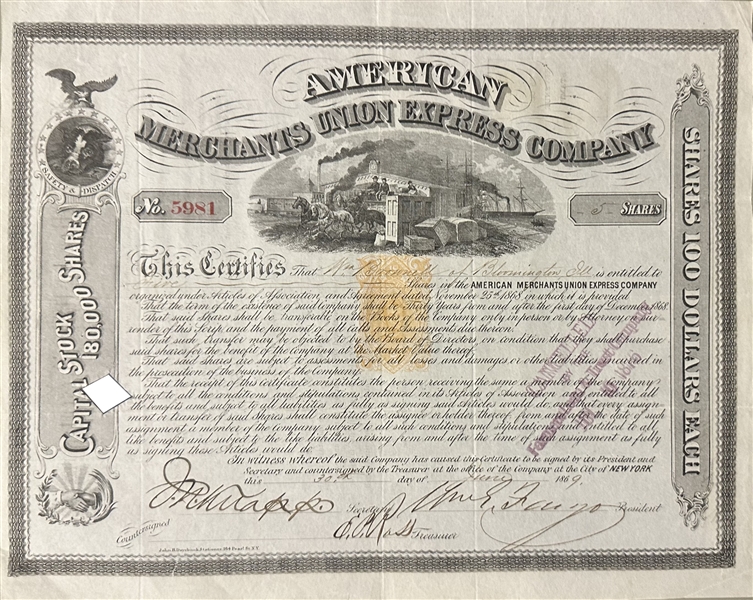 AMERICAN
MERCHANTS UNION EXPRESS COMPANY
SAFETY & DISPATCH
No. 5981
5 SHARES
CAPITAL STOCK
180,000 SHARES
SHARES 100 DOLLARS EACH
This Certifies That Wm of Bloomington Ill is entitled to
Five Shares in the AMERICAN MERCHANTS UNION EXPRESS COMPANY
organized under Articles of Association and Agreement dated November 25th 1868 in which it is provided
That the term of the existence of said company shall be Thirty Years from and after the first day of December 1868.
That said Shares shall be transferable, on the Books of the Company only in person or by Attorney on sur-
render of this Scrip and the payment of all calls and Assessments due thereon.
That such transfer may be objected to by the Board of Directors, on condition that they shall purchase
said shares for the benefit of the company at the Market Value thereof.
That said shares are subject to assessments for all losses and damages or other liabilities incurred in
the prosecution of the business of the Company.
That the receipt of this certificate constitutes the person receiving the same a member of the company
subject to all the conditions and stipulations contained in its Articles of Association and entitled to all
the benefits and subject to all liabilities as fully as signing such Articles would do. That every assign-
ment or transfer of said Shares shall constitute the assignee or holder thereof from and after the date of such
assignment a member of the company subject to all such conditions and stipulations and entitled to all
like benefits and subject to the like liabilities arising from and after the time of such assignment as fully
as signing these Articles would do.
In witness whereof the said Company has caused this Certificate to be signed by its President and
Secretary and countersigned by the Treasurer at the office of the Company at the City of NEW YORK
this 30th day of June 1869.
J.N. Knapp. Secretary Wm G. Fargo President
Countersigned Treasurer
CANCELLED